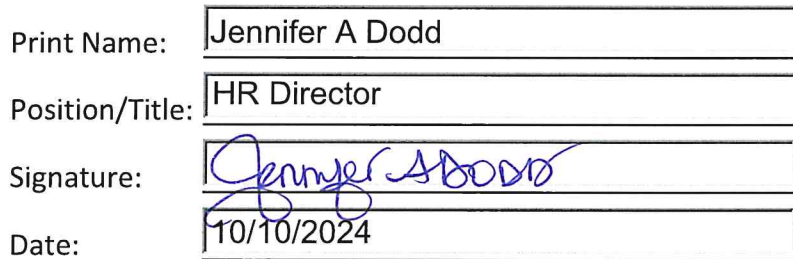 Print Name: Jennifer A Dodd
Position/Title: HR Director
Signature: Jennifer A Dodd
Date: 10/10/2024